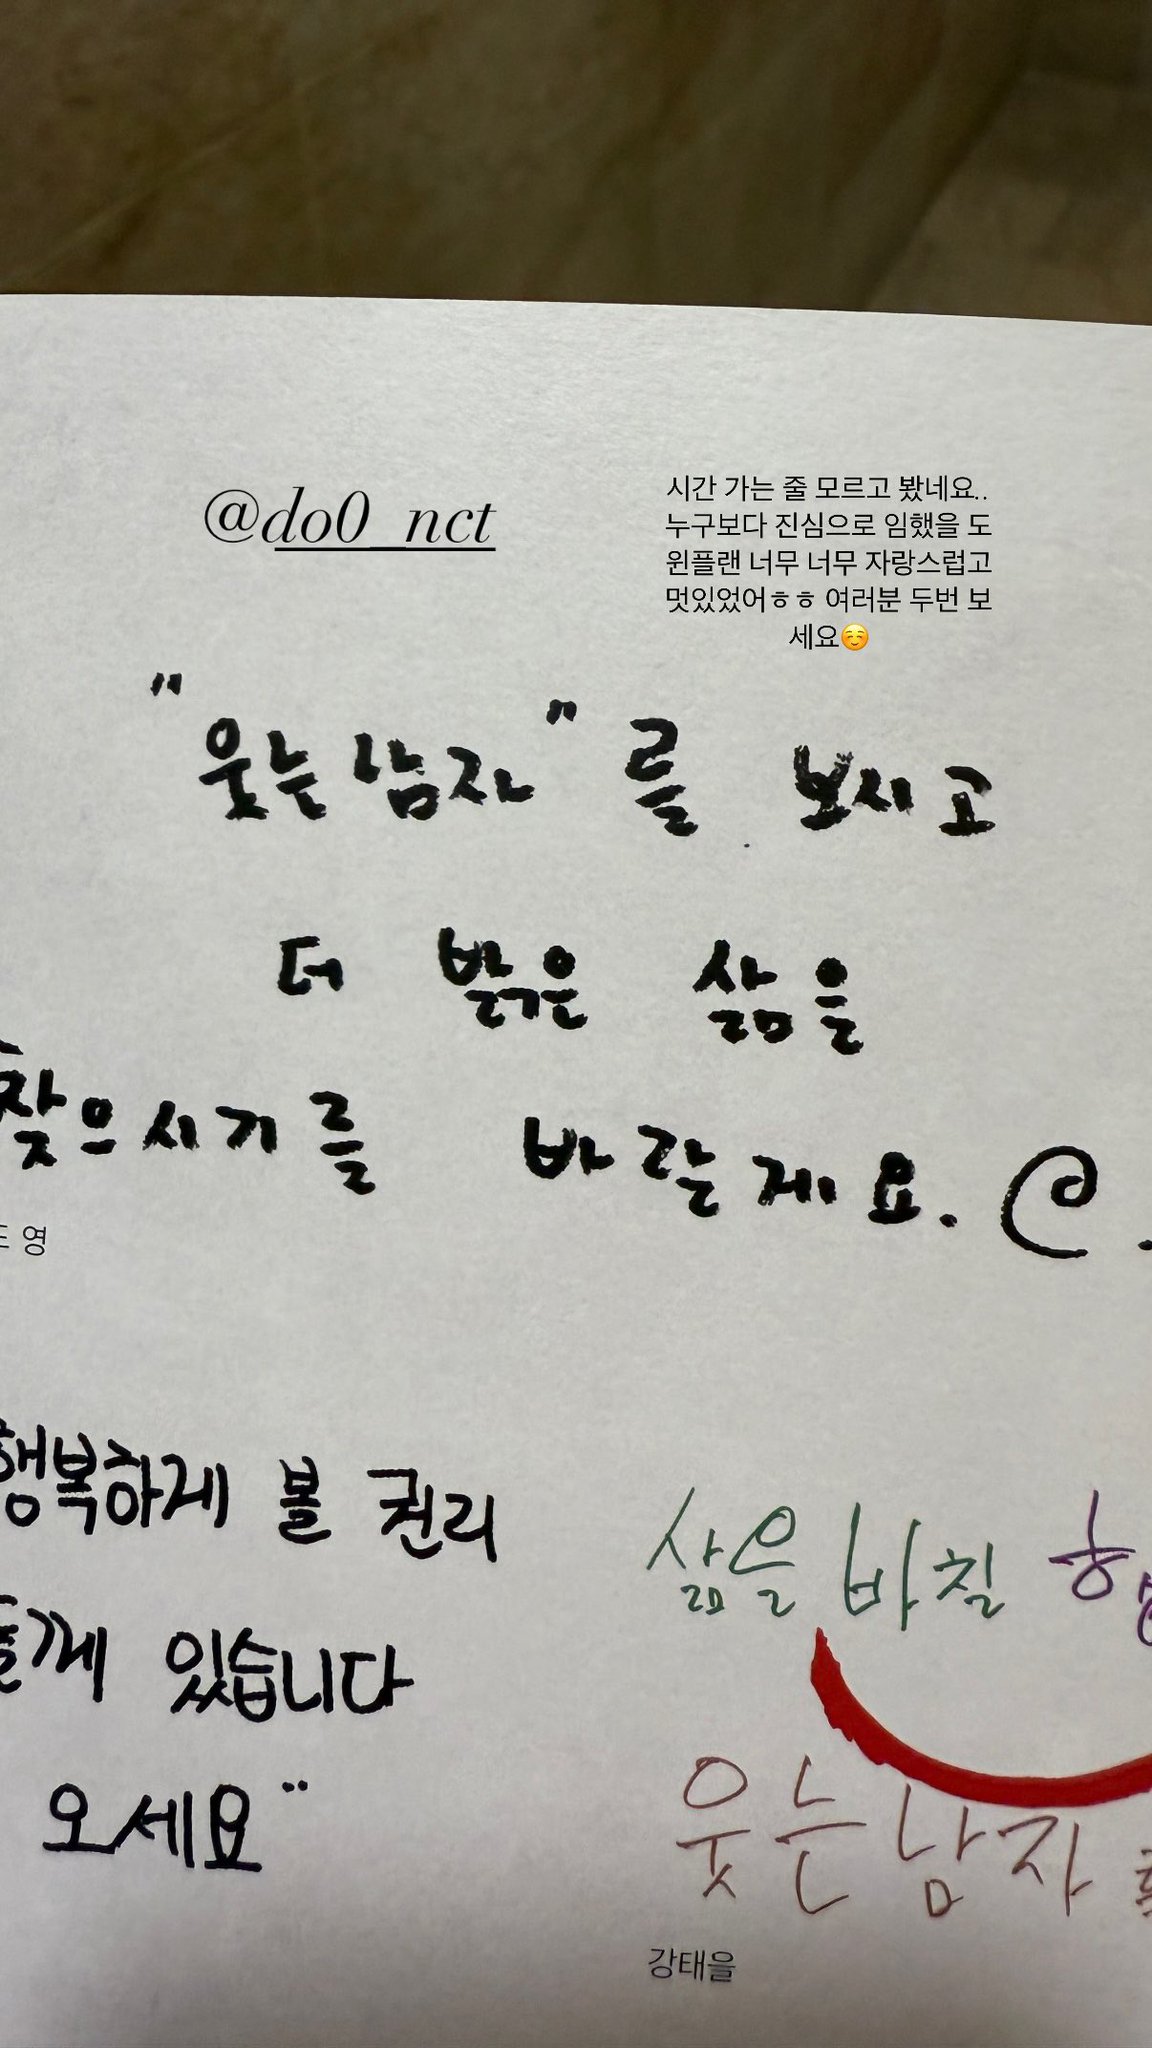 @do0_nct
시간 가는 줄 모르고 봤네요..
누구보다 진심으로 임했을 도
윈플랜 너무 너무 자랑스럽고
멋있었어ㅎㅎ 여러분 두번 보
세요☺️
"웃는 남자"를 보시고
더 밝은 삶을
찾으시기를 바랄게요.
영
행복하게 볼 권리
께 있습니다
오세요"
삶을 바칠
웃는 남자
강태을